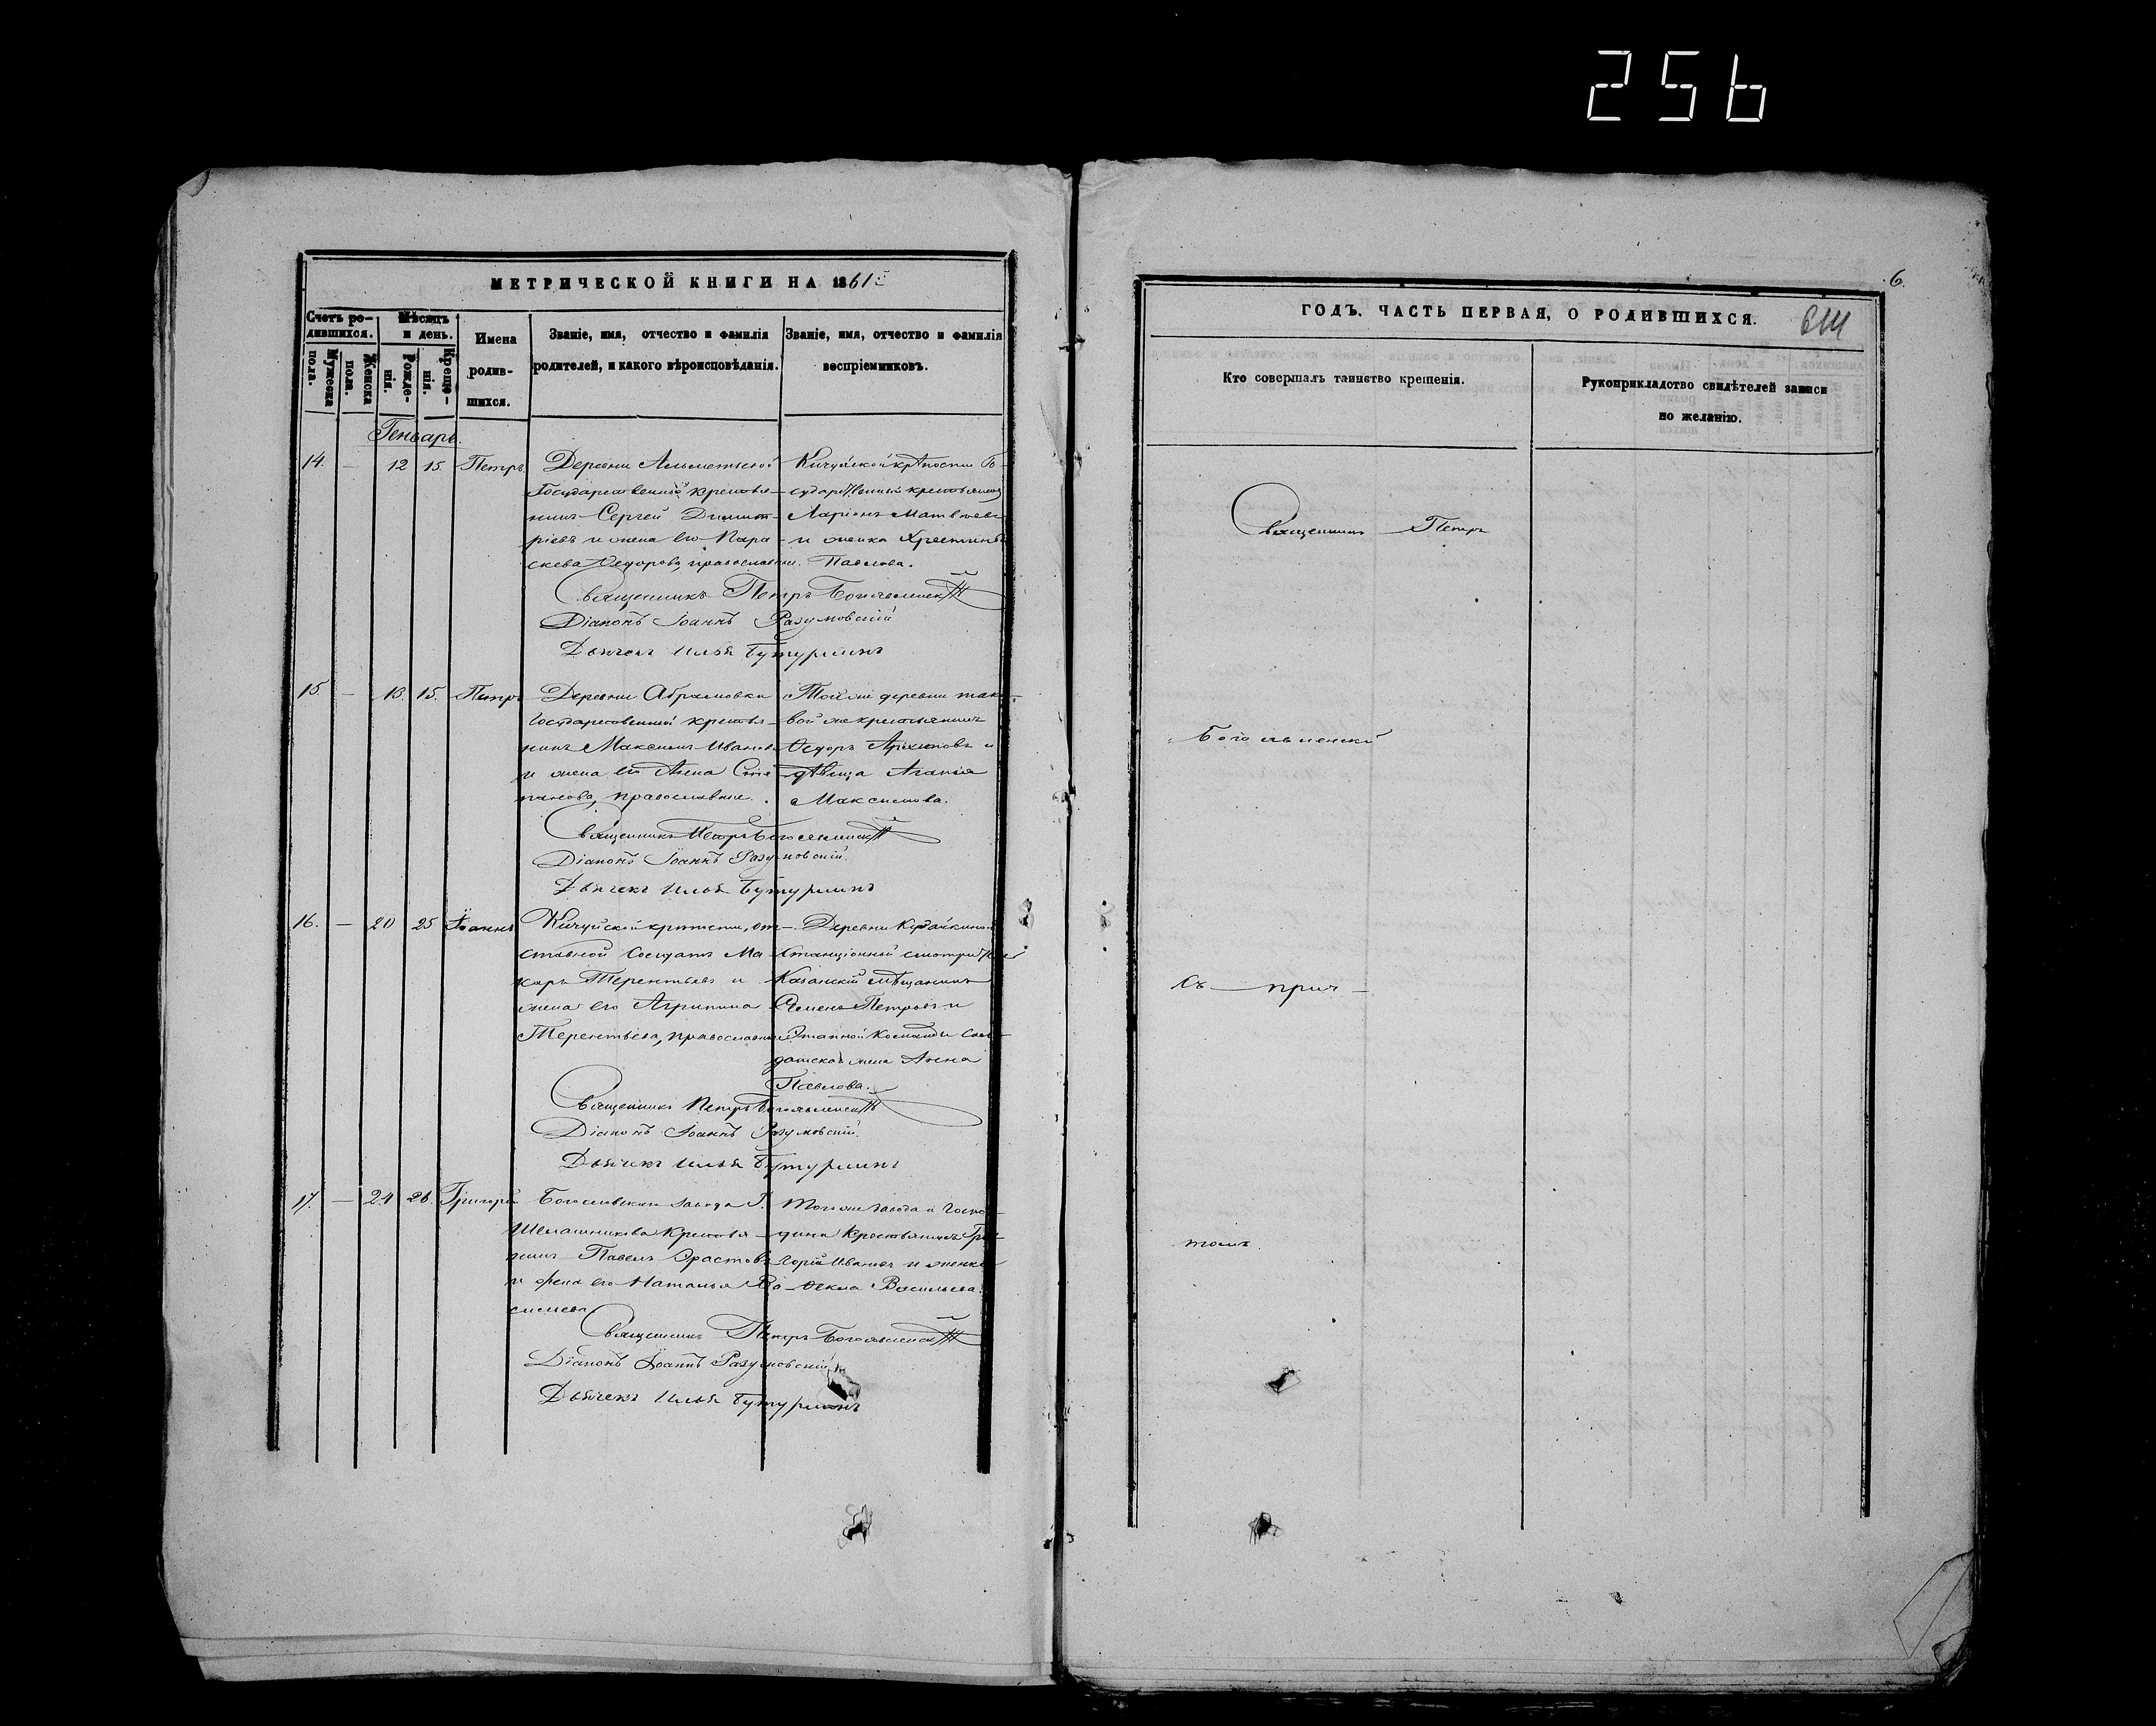 256
МЕТРИЧЕСКОЙ КНИГИ НА 1861
Счетъ ро-
дившихся.
Мужеска
пола.
Женска
пола.
Мѣсяцъ
и день.
Рожде-
нія.
Креще-
нія.
Имена
родив-
шихся.
Званіе, имя, отчество и фамилія
родителей, и какого вѣроисповѣданія.
Званіе, имя, отчество и фамилія
воспріемниковъ.
Генварь.
14. — 12 15 Петръ
Деревни Альметьевой
Государственный крестья-
нинъ Сергей Димит-
ріевъ и жена его Пара-
скева Ѳедорова, православные.
Кичуйской крѣпости Го-
сударственный крестьянинъ
Ларіонъ Матвѣевъ
и женка
Павлова.
Священникъ Петръ Богоявленскій
Діаконъ Іоаннъ Разумовскій
Дьячекъ Илья Бутурлинъ
15. — 13. 15. Петръ
Деревни Абрамовки
Государственный крестья-
нинъ Максимъ Ивановъ
и жена его Анна Сте-
панова, православные.
Той же деревни тако-
вой же крестьянинъ
Ѳедоръ Архиповъ и
дѣвица Агапія
Максимова.
Священникъ Петръ Богоявленскій
Діаконъ Іоаннъ Разумовскій.
Дьячекъ Илья Бутурлинъ
16. — 20 25 Іоаннъ
Кичуйской крѣпости, от-
ставной Солдатъ Ма-
каръ Терентьевъ и
жена его Агрипина
Терентьева, православные
Деревни
Станціонный смотритель
Казанскій мѣщанинъ
Семенъ Петровъ и
Этапной Команды Сол-
датская жена Анна
Павлова.
Священникъ Петръ Богоявленскій
Діаконъ Іоаннъ Разумовскій.
Дьячекъ Илья Бутурлинъ
17. — 24 26. Григорій
Богословскаго Завода Г.
Шелашникова Крестья-
нинъ Павелъ Ерастовъ
и жена его Наталья Ва-
сильева.
Того же Завода и Госпо-
дина Крестьянинъ Гри-
горій Ивановъ и женка
Ѳекла Васильева.
Священникъ Петръ Богоявленскій
Діаконъ Іоаннъ Разумовскій
Дьячекъ Илья Бутурлинъ
6.
ГОДЪ. ЧАСТЬ ПЕРВАЯ, О РОДИВШИХСЯ.
Кто совершалъ таинство крещенія.
Рукоприкладство свидѣтелей записи
по желанію.
Священникъ Петръ
Богоявленскій
Съ прич-
томъ.